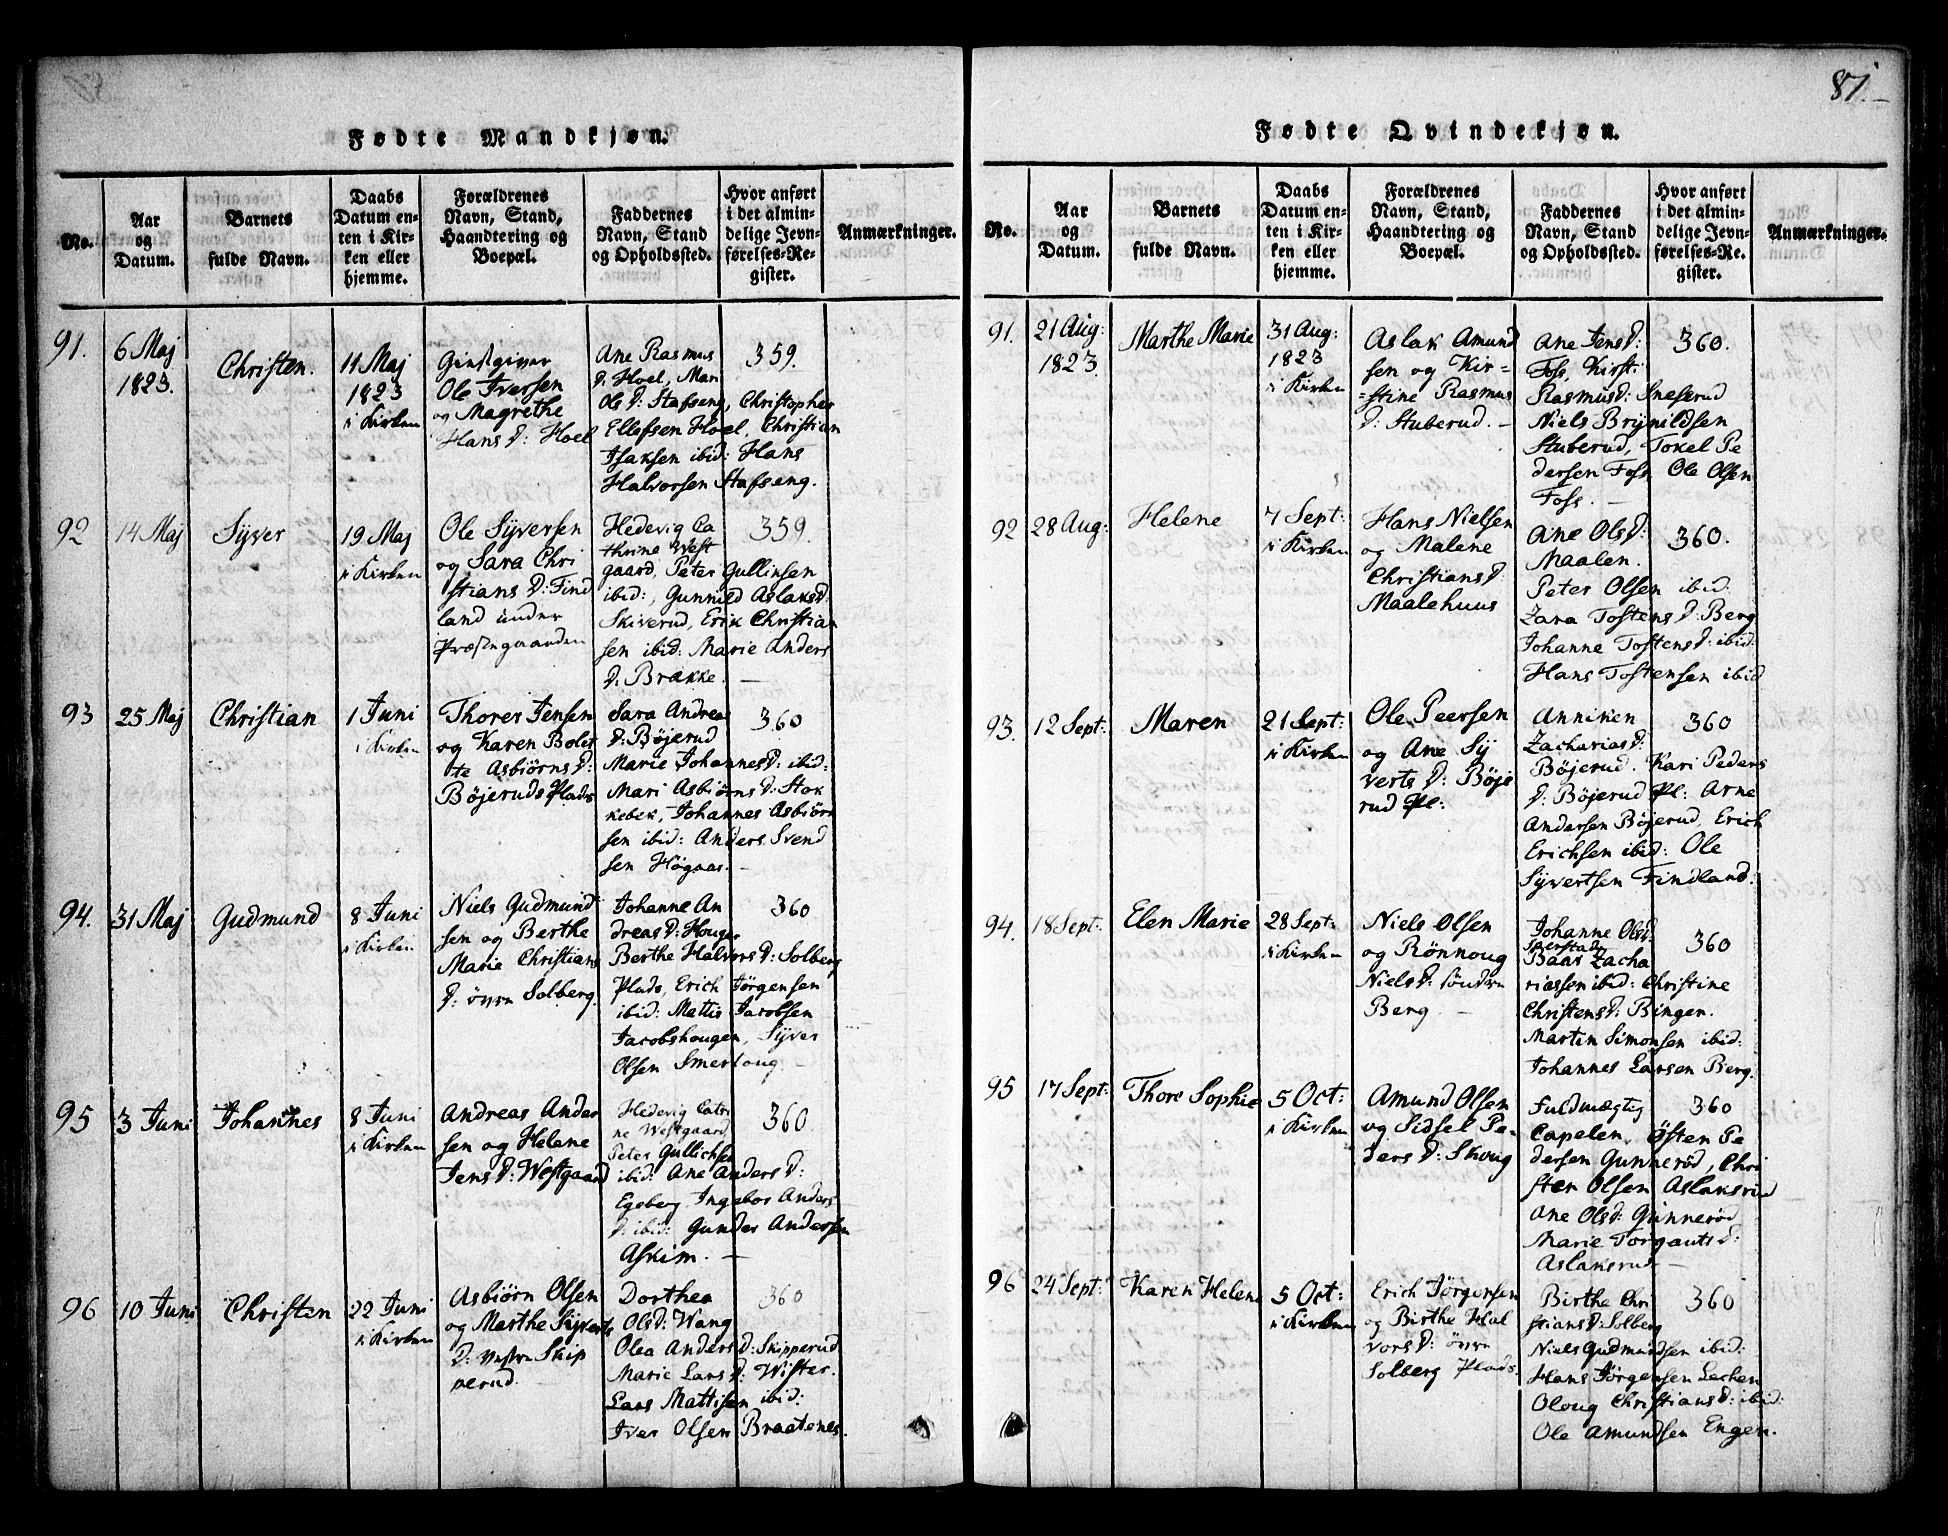 87.
Fødte Mandkjøn.
No.
Aar
og
Datum.
Barnets
fulde Navn.
Daabs
Datum en-
ten i Kir-
ken eller
hjemme.
Forældrenes
Navn, Stand,
Haandtering og
Boepæl.
Faddernes
Navn, Stand
og Opholdssted.
Hvor anført
i det almin-
delige Jevn-
førelses-Re-
gister.
Anmærkninger.
91.
6 Maj
1823.
Christen.
11 Maj
1823
i Kirken
Giestgiver
Ole Iversen
og Magrethe
Hans D: Hoel
Ane Rasmus
D: Hoel, Mari
Ols D: Stafseng, Christopher
Ellefsen Hoel, Christian
Isaksen ibid: Hans
Halvorsen Stafseng.
359.
92
14 Maj
Syver
19 Maj
i Kirken
Ole Syversen
og Sara Chri
stians D: Find
land under
Præstegaarden
Hedevig Ca
thrine West
gaard, Peter Gullinsen
ibid:, Gunnild Aslaks D:
Skiverud, Erik Christian
sen ibid: Marie Anders
D: Brække.
359.
93
25 Maj
Christian
1 Juni
i Kirken
Thorer Jensen
og Karen Bolet
te Asbiørns D:
Bøjeruds Plads
Sara Andrea
D: Bøjerud
Marie Johannes D: ibid:
Mari Asbiørns D: Stok
kebek, Johannes Asbiørn
sen ibid: Anders Svend
sen Høgaas.
360
94.
31 Maj
Gudmund
8 Juni
i Kirken
Niels Gudmund
sen og Berthe
Marie Christians
D: øvre Solberg.
Johanne An
dreas D: Houger
Berthe Halvors D: Solberg
Plads, Erich Jørgensen
ibid: Mattis Jacobsen
Jacobshougen, Syver
Olsen Smertoug.
360
95
3 Juni
Johannes
8 Juni
i Kirken
Andreas Ander
sen og Helene
Jens D: Westgaard
Hedevig Catri
ne Westgaard,
Peter Gullichsen
ibid: Ane Anders D:
Egeberg Ingebor Anders
D: ibid: Gunder Andersen
Askim.
360
96
10 Juni
Christen
22 Juni
i Kirken
Asbiørn Olsen
og Marthe Syverts
D: vestre Skip
perud.
Dorthea
Ols D: Wang
Olea Anders D: Skipperud
Marie Lars D: Wister.
Lars Mattisen ibid:
Iver Olsen Braatenes.
360
Fødte Qvindekjøn.
No.
Aar
og
Datum.
Barnets
fulde Navn.
Daabs
Datum en-
ten i Kir-
ken eller
hjemme.
Forældrenes
Navn, Stand,
Haandtering og
Boepæl.
Faddernes
Navn, Stand
og Opholdssted.
Hvor anført
i det almin-
delige Jevn-
førelses-Re-
gister.
Anmærkninger.
91.
21 Aug:
1823.
Marthe Marie
31 Aug:
1823
i Kirken
Aslak Amund
sen og Kir=
=stine Rasmus
D: Stuberud.
Ane Jens D:
Foss, Kirst:
Rasmus D: Sneserud
Niels Brynildsen
Stuberud, Tokel Pe
dersen Foss Ole Olsen
Foss.
360.
92
28 Aug:
Helene
7 Sept:
i Kirken
Hans Nielsen
og Malene
Christians D
Maalehuus
Ane Ols D:
Maalen.
Peter Olsen ibid:
Zara Tostens D: Berg
Johanne Tostens D: ibid:
Hans Tostensen ibid
360.
93.
12 Sept:
Maren
21 Sept:
i Kirken
Ole Peersen
og Ane Sy
verts D: Bøje
rud Pl:
Anniken
Zacharias D:
Bøjerud. Kari Peders
D: Bøjerud Pl: Arne
Andersen Bøjerud, Erich
Erichsen ibid: Ole
Syvertsen Findland.
360
94.
18 Sept:
Elen Marie
28 Sept:
i Kirken
Niels Olsen
og Rønnoug
Niels D: søndre
Berg
Johanne Ols D:
Baar Zacha
riassen ibid: Christine
Christens D: Bingen.
Martin Simonsen ibid:
Johannes Larsen Berg.
360
95
17 Sept:
Thore Sophie
5 Oct:
i Kirken
Amund Olsen
og Sidsel Pe-
ders D: Skoug
Fuldmægtig
Capelen, Østen Pe
dersen Gunnerød, Chri
sten Olsen Aslaksrud
Ane Ols D: Gunnerød
Marie Torgauts D:
Aslaksrud
360
96
24 Sept:
Karen Helene
5 Oct:
i Kirken
Erich Jørgensen
og Birthe Hal
vors D: øvre
Solberg Plads.
Birthe Chri
stians D: Solberg
Niels Gudmundsen ibid:
Hans Jørgensen Lechen
Oloug Christians D: ibid:
Ole Amundsen Engen.
360